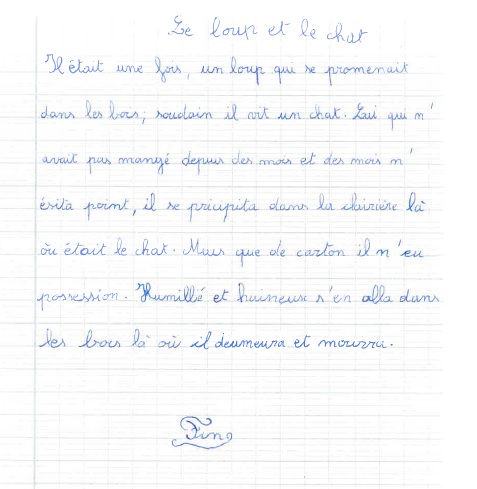 Le loup et le chat
Il était une fois, un loup qui se promenait
dans les bois; soudain il vit un chat. Lui qui n'
avait pas mangé depuis des mois et des mois n'
ésita point, il se pricipita dans la clairière là
où était le chat. Mais que de carton il n'eu
possession. Humillié et haineux s'en alla dans
les bois là où il deumeura et mourra.
Fin